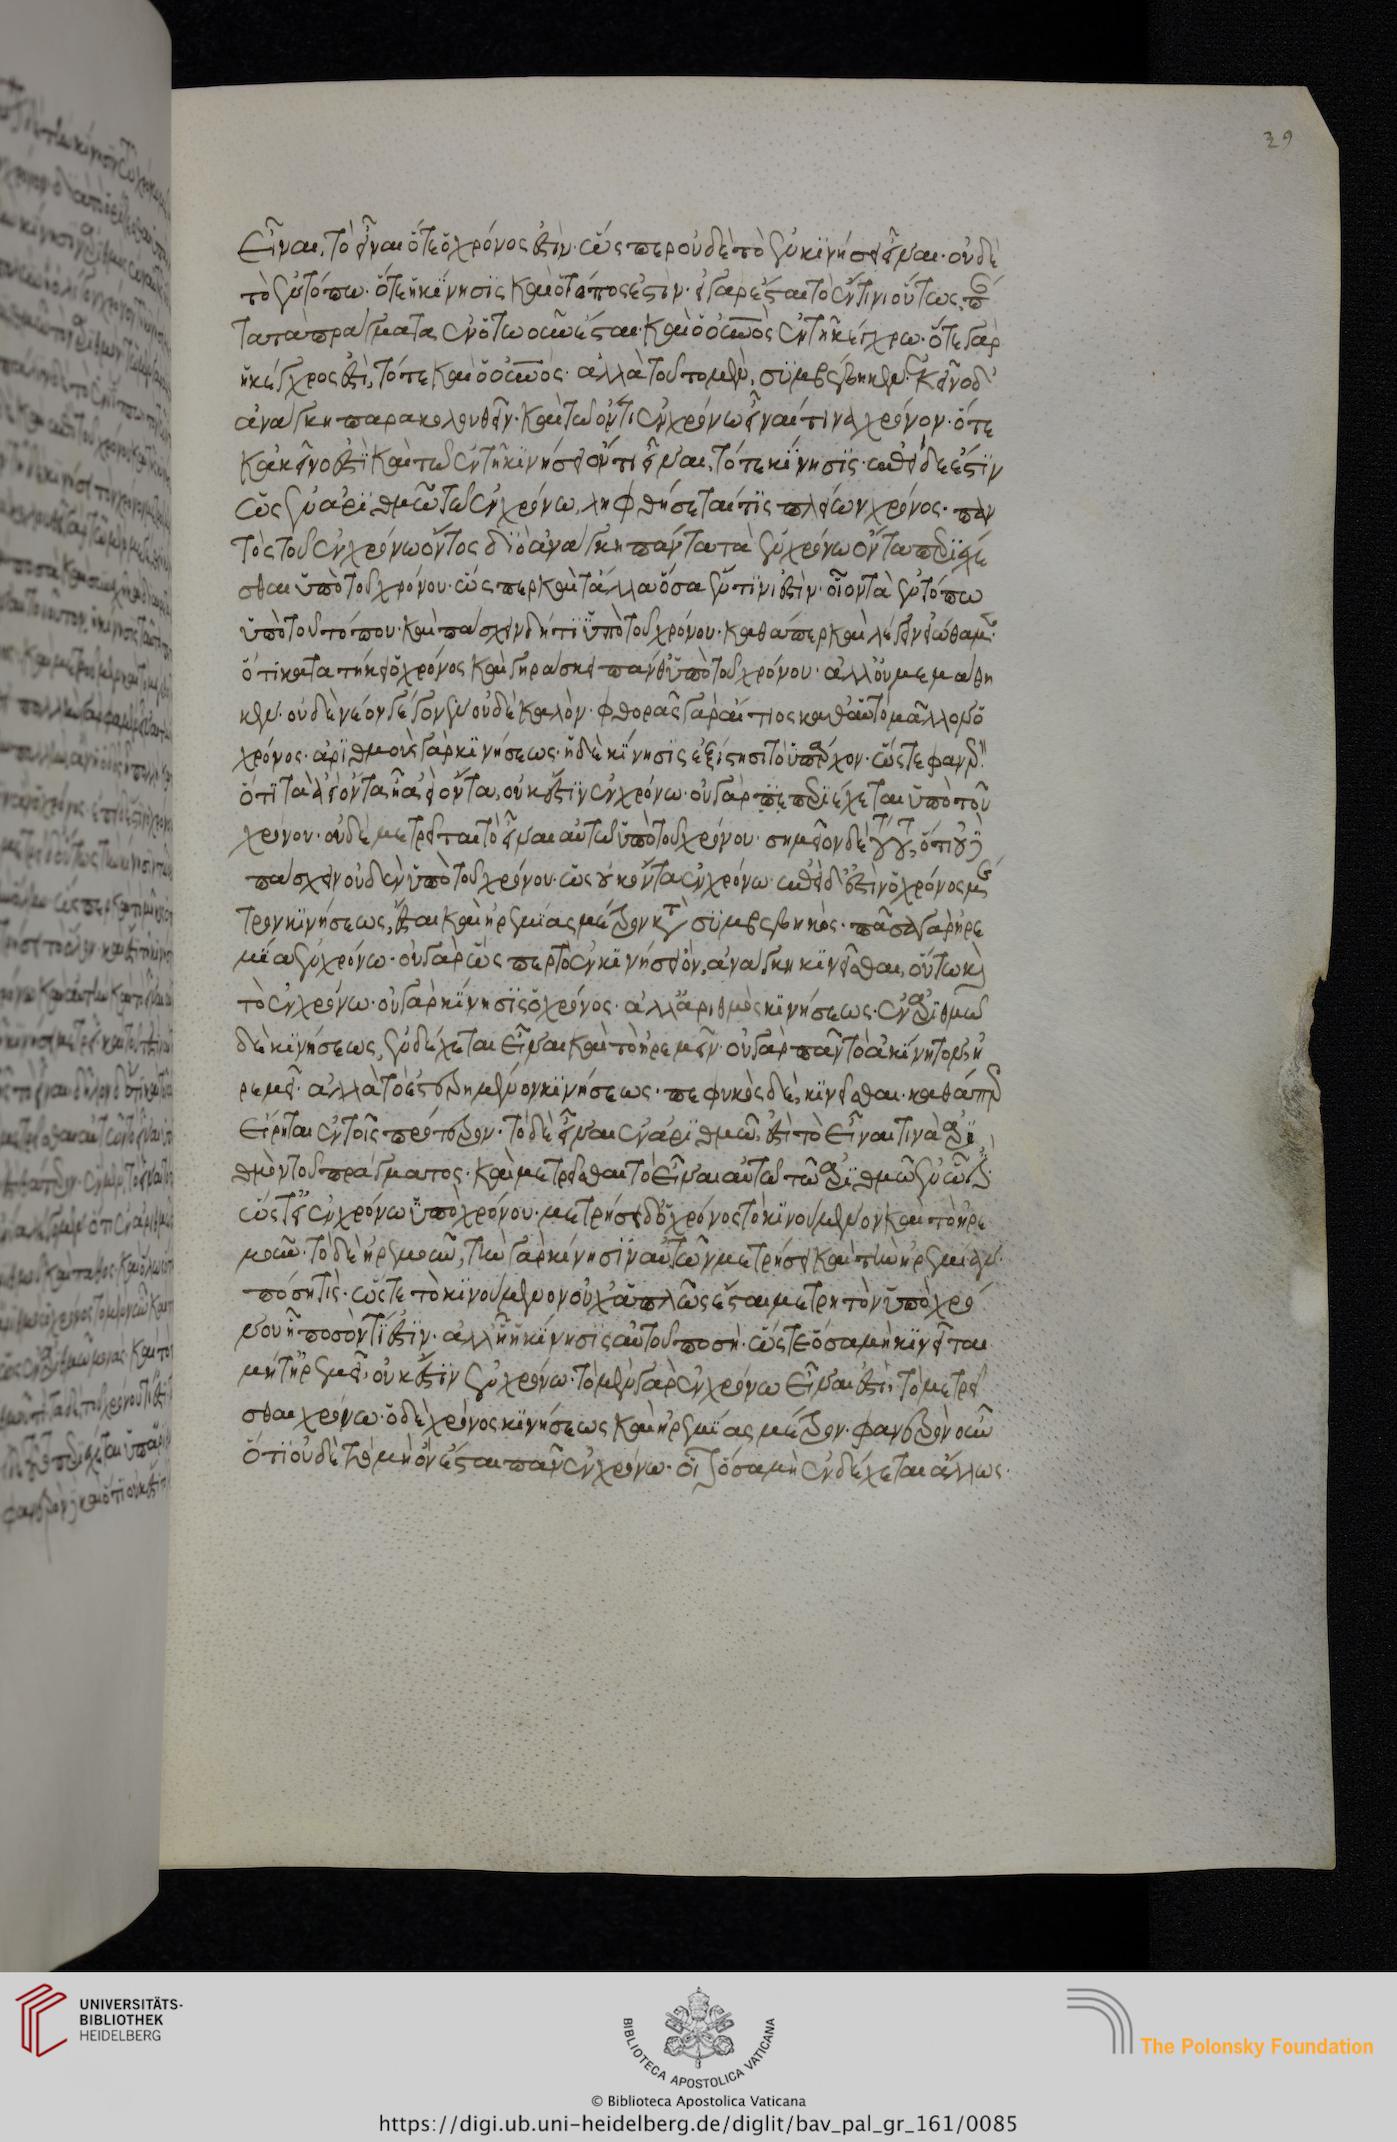 Εἶναι, τὸ εἶναι ὅτε ὁ χρόνος ἐστὶν· ὥσπερ οὐδὲ τὸ ἐν κινήσει εἶναι· οὐδὲ
τὸ ἐν τόπω· ὅτε ἡ κίνησις καὶ ὁ τόπος ἐστὶν· εἰ γὰρ ἔσται τὸ ἔν τινι οὕτως, πάν
τα τὰ πράγματα ἐν ὅτω οὖν ἔσται· καὶ ὁ οὐνὸς ἐν τῆ κέγχρω· ὅτε γὰρ
ἡ κέγχρος ἐστὶ, τότε καὶ ὁ οὐνός· ἀλλὰ τοῦτο μὲν, συμβέβηκεν· κεῖνο δ'
ἀνάγκη παρακολουθεῖν· καὶ τῶ ὄντι ἐν χρόνω εἶναί τινα χρόνον· ὅτε
κἀκεῖνο ἐστὶ καὶ τῶ ἐν τῆ κινήσει ὄντι εἶναι, τότε κίνησις· ἐπεὶ δέ ἐστιν
ὡς ἐν ἀριθμῶ τῶ ἐν χρόνω, ληφθήσεταί τις πλείων χρόνος· παν
τὸς τοῦ ἐν χρόνω ὄντος διὸ ἀνάγκη πάντα τὰ ἐν χρόνω ὄντα περιέχε
σθαι ὑπὸ τοῦ χρόνου· ὥσπερ καὶ τἄλλα ὅσα ἔν τινι ἐστὶν· οἷον τὰ ἐν τόπω
ὑπὸ τοῦ τόπου· καὶ πάσχει δή τι ὑπὸ τοῦ χρόνου· καθάπερ καὶ λέγειν εἰώθαμεν·
ὅτι κατατήκει ὁ χρόνος καὶ γηράσκει πάνθ' ὑπὸ τοῦ χρόνου· ἀλλ' οὐ μεμάθη
κεν· οὐδὲ νέον γέγονεν οὐδὲ καλὸν· φθορᾶς γὰρ αἴτιος καθ' αὑτὸ μᾶλλον ὁ
χρόνος· ἀριθμὸς γὰρ κινήσεως· ἡ δὲ κίνησις ἐξίστησι τὸ ὑπάρχον· ὥστε φανερὸν
ὅτι τὰ ἀεὶ ὄντα ἧ ἀεὶ ὄντα, οὐκ ἔστιν ἐν χρόνω· οὐ γὰρ περιέχεται ὑπὸ τοῦ
χρόνου· οὐδὲ μετρεῖται τὸ εἶναι αὐτῶν ὑπὸ τοῦ χρόνου· σημεῖον δὲ τούτου, ὅτι οὐδὲ
πάσχει οὐδὲν ὑπὸ τοῦ χρόνου· ὡς οὐκ ὄντα ἐν χρόνω· ἐπεὶ δ' ἐστὶν ὁ χρόνος μέ
τρον κινήσεως, ἔσται καὶ ἠρεμίας μέτρον κατὰ συμβεβηκὸς· πᾶσα γὰρ ἠρε
μία ἐν χρόνω· οὐ γὰρ ὥσπερ τὸ ἐν κινήσει ὂν, ἀνάγκη κινεῖσθαι, οὕτω καὶ
τὸ ἐν χρόνω· οὐ γὰρ κίνησις ὁ χρόνος· ἀλλ' ἀριθμὸς κινήσεως· ἐν ἀριθμῶ
δὲ κινήσεως, ἐνδέχεται εἶναι καὶ τὸ ἠρεμεῖν· οὐ γὰρ πᾶν τὸ ἀκίνητον, ἠ
ρεμεῖ· ἀλλὰ τὸ ἐστερημένον κινήσεως· πεφυκὸς δὲ, κινεῖσθαι· καθάπερ
Εἴρηται ἐν τοῖς πρότερον· τὸ δὲ εἶναι ἐν ἀριθμῶ, ἐστὶ τὸ εἶναι τινὰ ἀρι
θμὸν τοῦ πράγματος· καὶ μετρεῖσθαι τὸ εἶναι αὐτοῦ τῶ ἀριθμῶ ἐν ὧ ἐστιν·
ὥστ' εἰ ἐν χρόνω ὑπὸ χρόνου· μετρήσει δ' ὁ χρόνος τὸ κινούμενον καὶ τὸ ἠρε
μοῦν· τὸ δὲ ἠρεμοῦν, τὴν γὰρ κίνησιν αὐτῶν μετρήσει καὶ τὴν ἠρεμίαν·
πόση τὶς· ὥστε τὸ κινούμενον οὐχ ἁπλῶς ἔσται μετρητὸν ὑπὸ χρό
νου ἧ ποσόν τι ἐστὶν· ἀλλ' ἧ ἡ κίνησις αὐτοῦ ποσὴ· ὥστε ὅσα μὴ κινεῖται
μήτ' ἠρεμεῖ, οὐκ ἔστιν ἐν χρόνω· τὸ μὲν γὰρ ἐν χρόνω εἶναι ἐστὶ, τὸ μετρεῖ
σθαι χρόνω· ὁ δὲ χρόνος κινήσεως καὶ ἠρεμίας μέτρον· φανερὸν οὖν
ὅτι οὐδὲ τὸ μὴ ὂν ἔσται πᾶν ἐν χρόνω· οἷον ὅσα μὴ ἐνδέχεται ἄλλως·
39
UNIVERSITÄTS-
BIBLIOTHEK
HEIDELBERG
BIBLIOTECA APOSTOLICA VATICANA
© Biblioteca Apostolica Vaticana
The Polonsky Foundation
https://digi.ub.uni-heidelberg.de/diglit/bav_pal_gr_161/0085